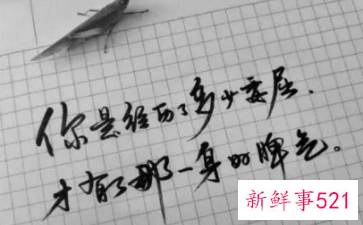 你是经历了多少委屈.
才有了那一身的脾气。
新鲜事521